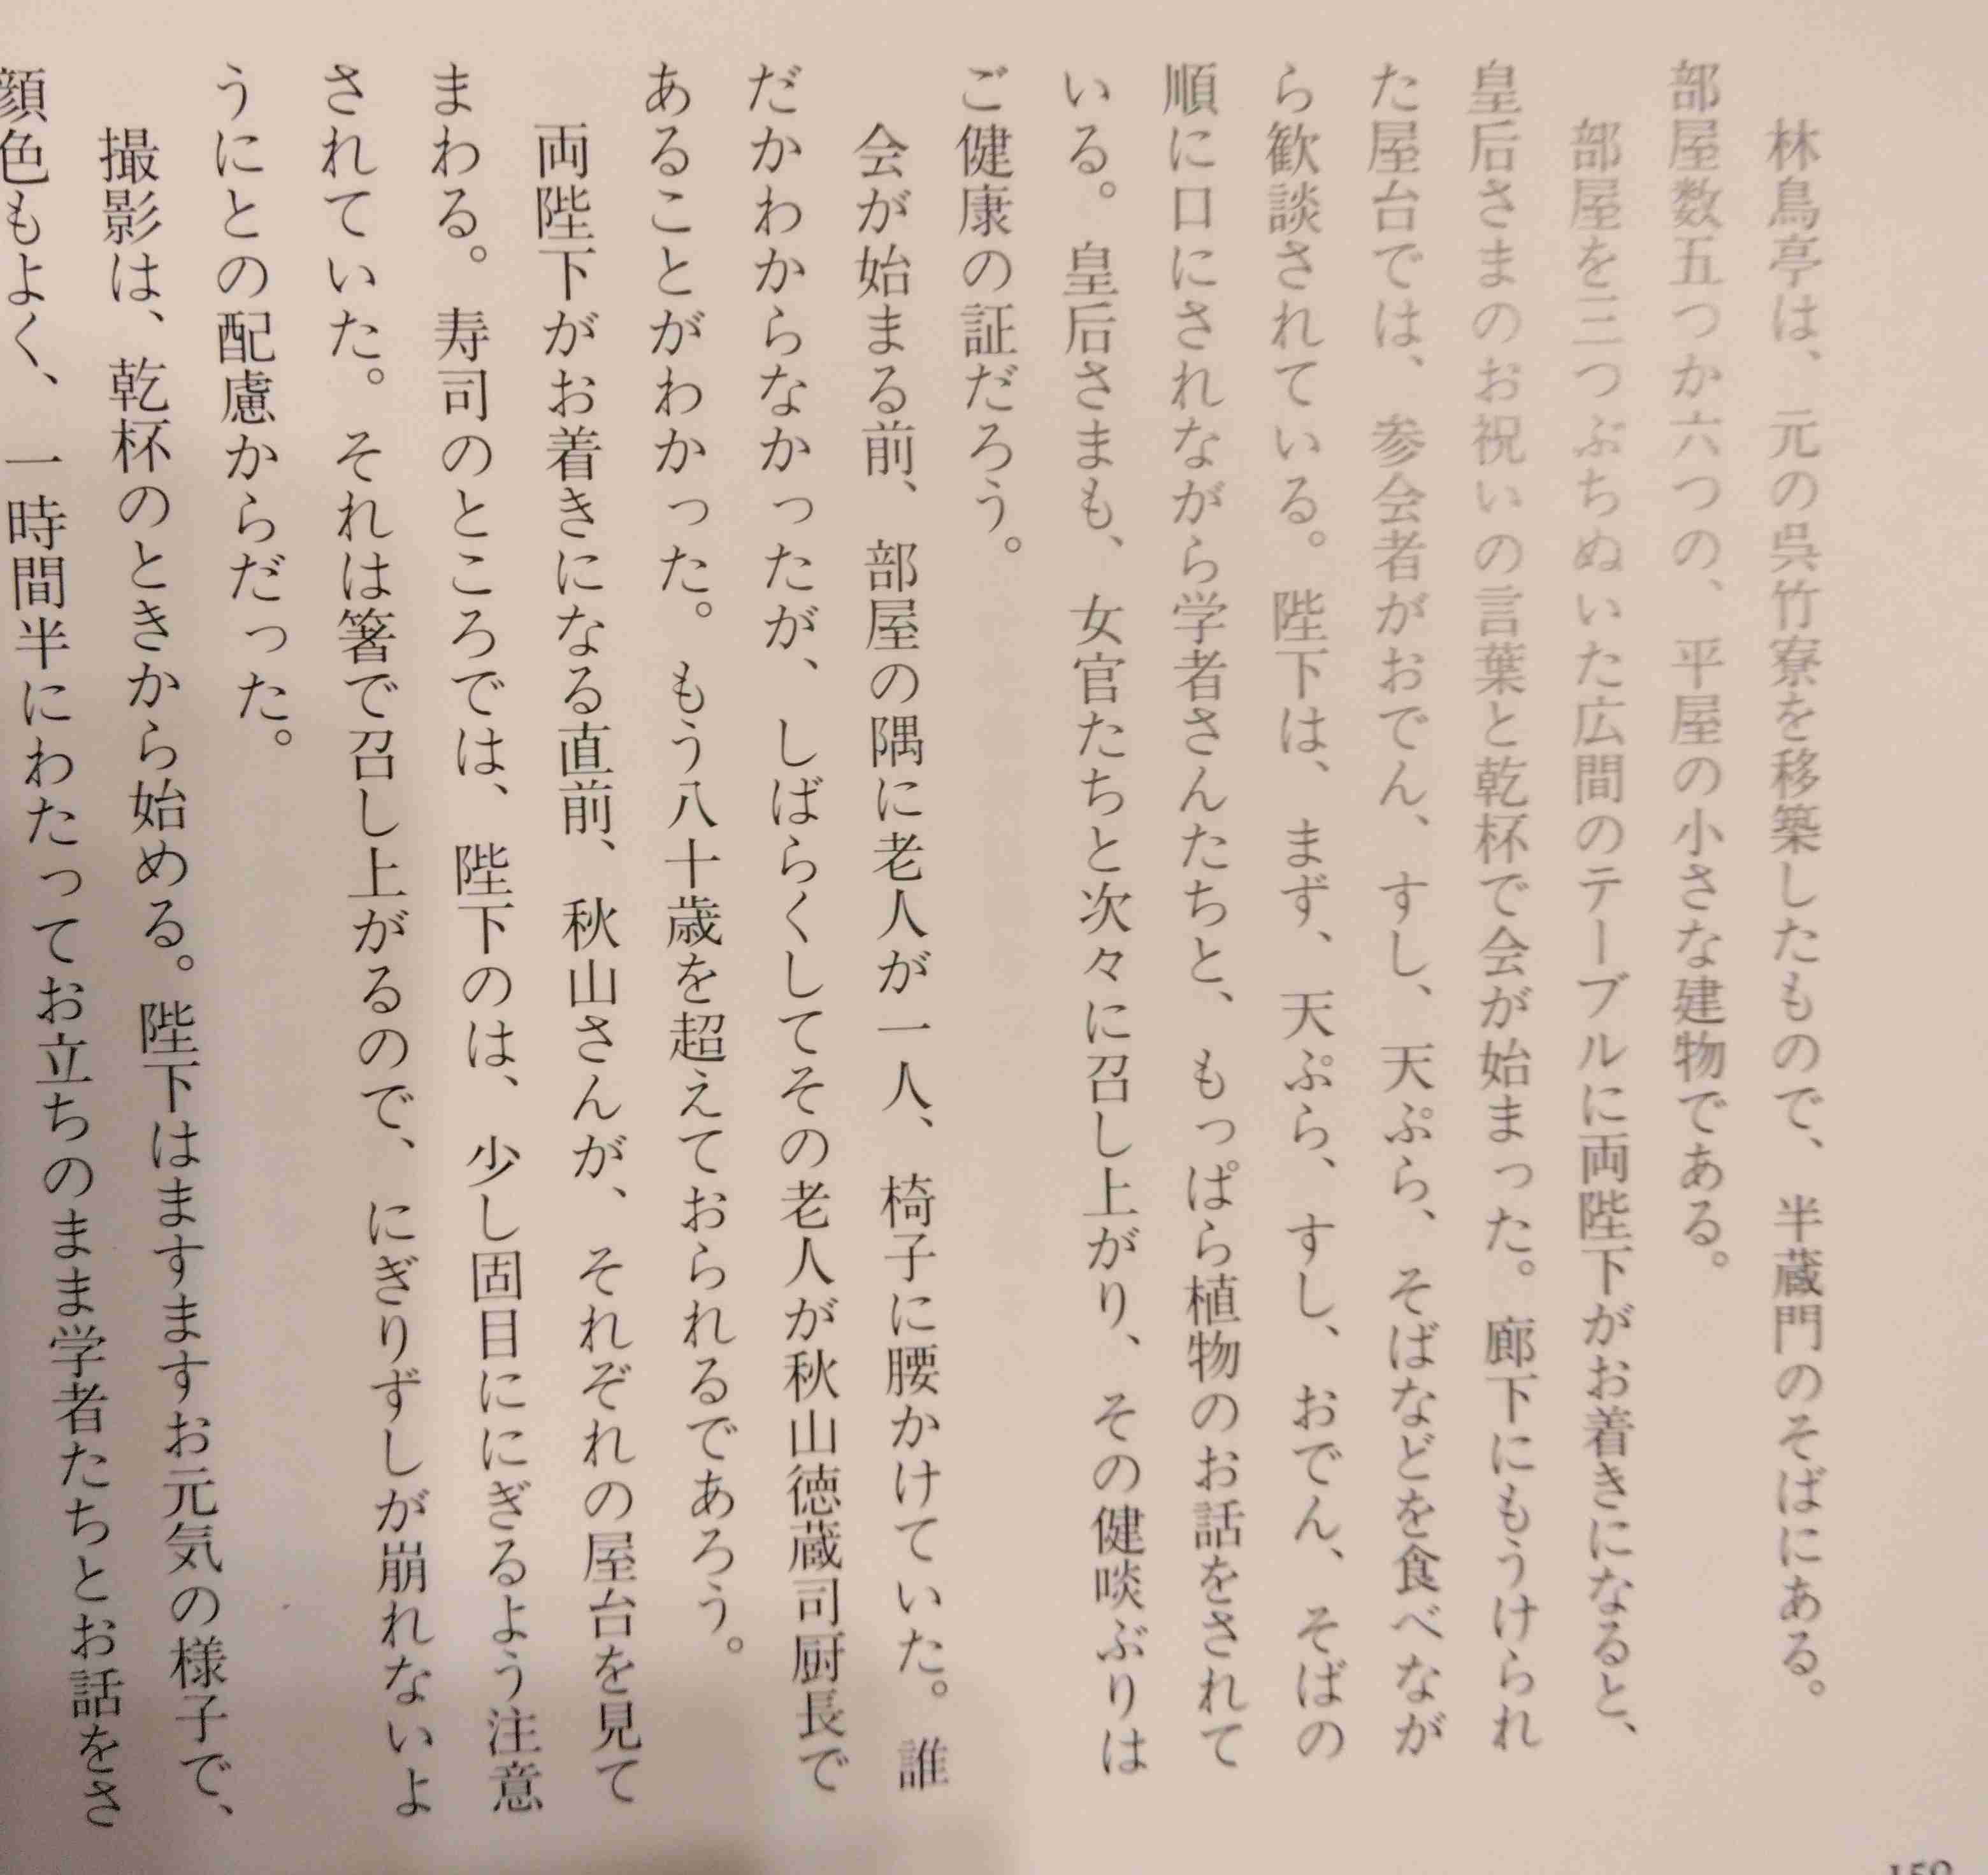 林鳥亭は、元の呉竹寮を移築したもので、半蔵門のそばにある。
部屋数五つか六つの、平屋の小さな建物である。
部屋を三つぶちぬいた広間のテーブルに両陛下がお着きになると、
皇后さまのお祝いの言葉と乾杯で会が始まった。廊下にもうけられ
た屋台では、参会者がおでん、すし、天ぷら、そばなどを食べなが
ら歓談されている。陛下は、まず、天ぷら、すし、おでん、そばの
順に口にされながら学者さんたちと、もっぱら植物のお話をされて
いる。皇后さまも、女官たちと次々に召し上がり、その健啖ぶりは
ご健康の証だろう。
会が始まる前、部屋の隅に老人が一人、椅子に腰かけていた。誰
だかわからなかったが、しばらくしてその老人が秋山徳蔵司厨長で
あることがわかった。もう八十歳を超えておられるであろう。
両陛下がお着きになる直前、秋山さんが、それぞれの屋台を見て
まわる。寿司のところでは、陛下のは、少し固目ににぎるよう注意
されていた。それは箸で召し上がるので、にぎりずしが崩れないよ
うにとの配慮からだった。
撮影は、乾杯のときから始める。陛下はますますお元気の様子で、
顔色もよく、一時間半にわたってお立ちのまま学者たちとお話をさ
159